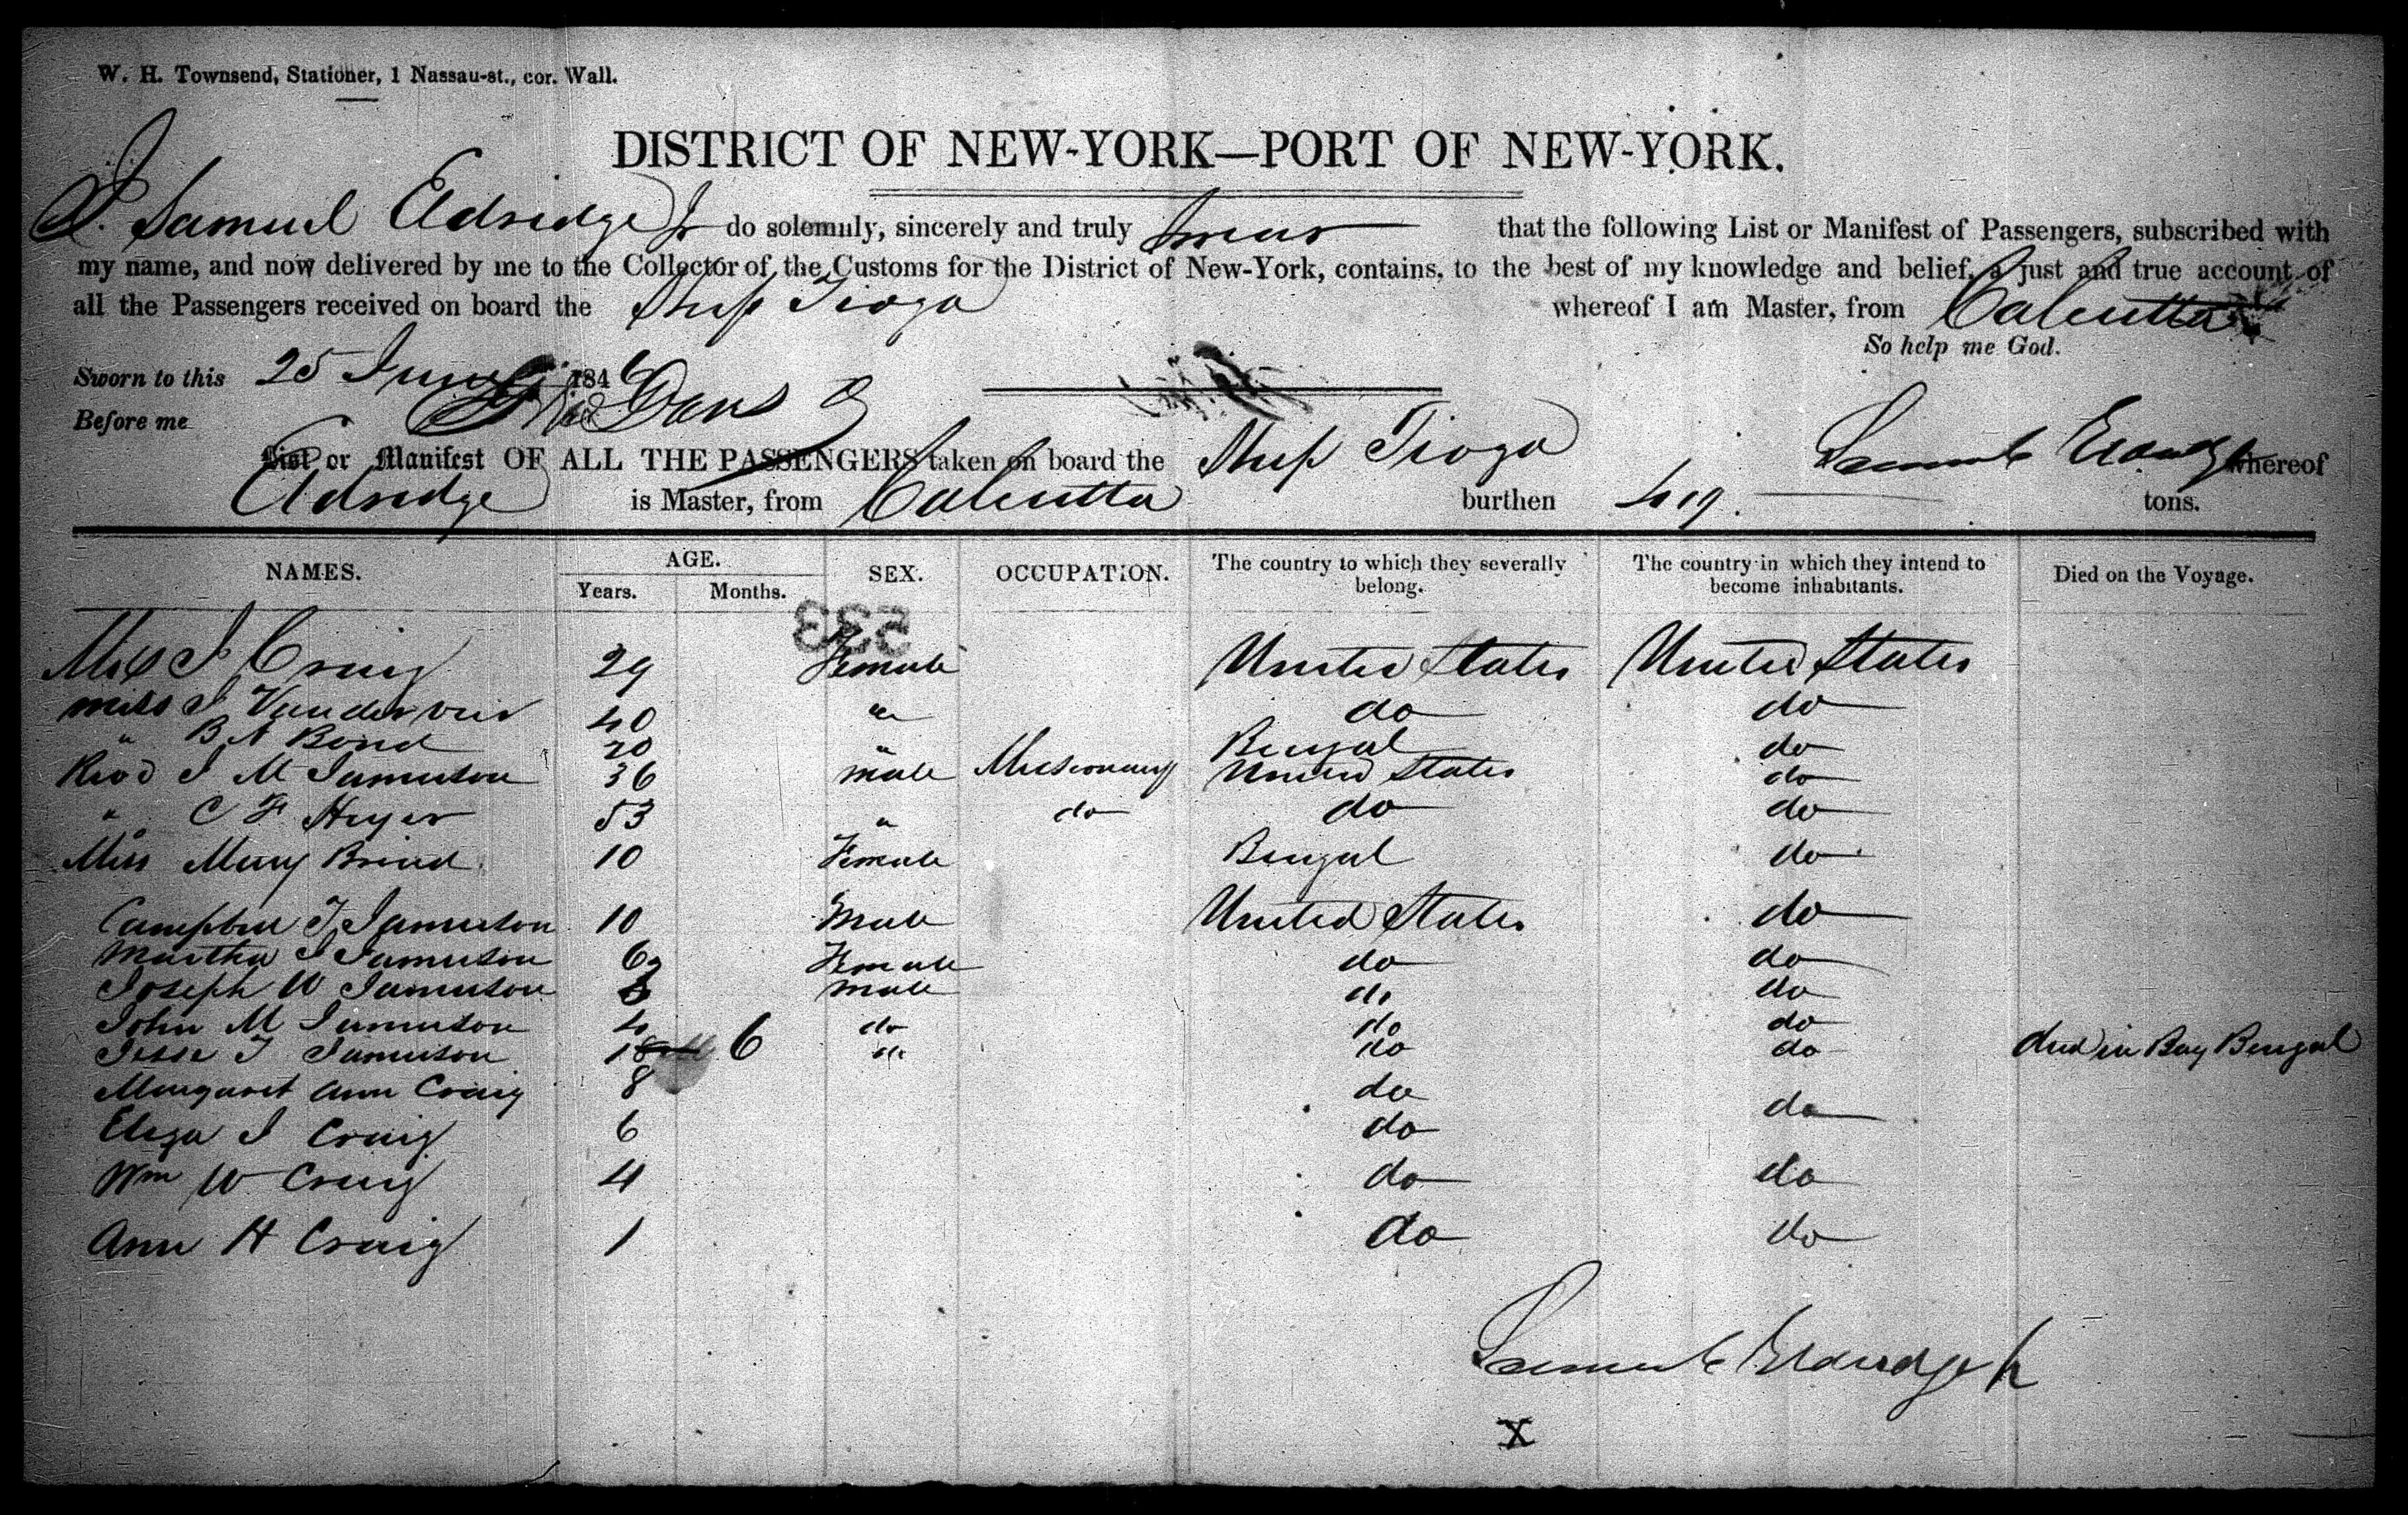 W. H. Townsend, Stationer, 1 Nassau-st., cor. Wall.
DISTRICT OF NEW-YORK—PORT OF NEW-YORK.
I Samuel Eldridge Jr do solemnly, sincerely and truly swear that the following List or Manifest of Passengers, subscribed with
my name, and now delivered by me to the Collector of the Customs for the District of New-York, contains, to the best of my knowledge and belief, a just and true account of
all the Passengers received on board the Ship Tioga whereof I am Master, from Calcutta
So help me God.
Sworn to this 25 June 1846
Before me
List or Manifest OF ALL THE PASSENGERS taken on board the Ship Tioga Samuel Eldridge whereof
Eldridge is Master, from Calcutta burthen 419. tons.
NAMES. AGE. SEX. OCCUPATION. The country to which they severally belong. The country in which they intend to become inhabitants. Died on the Voyage.
Years. Months.
533
J Craig 29 Female United States United States
Miss J Vanderveer 40 " do do
" B N Bond 20 " Bengal do
Revd J M Jamieson 36 male Missionary United States do
" C F Heyer 53 " do do do
Miss Mary Bond 10 Female Bengal do
Campbell T Jamieson 10 Male United States do
Martha J Jamieson 6 Female do do
Joseph W Jamieson male do do
John M Jamieson 4 do do do
Jesse T Jamieson 18 6 " do do died in Bay Bengal
Margaret Ann Craig 8 do
Eliza J Craig 6 do do
Wm W Craig 4 do do
Ann H Craig 1 do do
Samuel Eldridge Jr
X